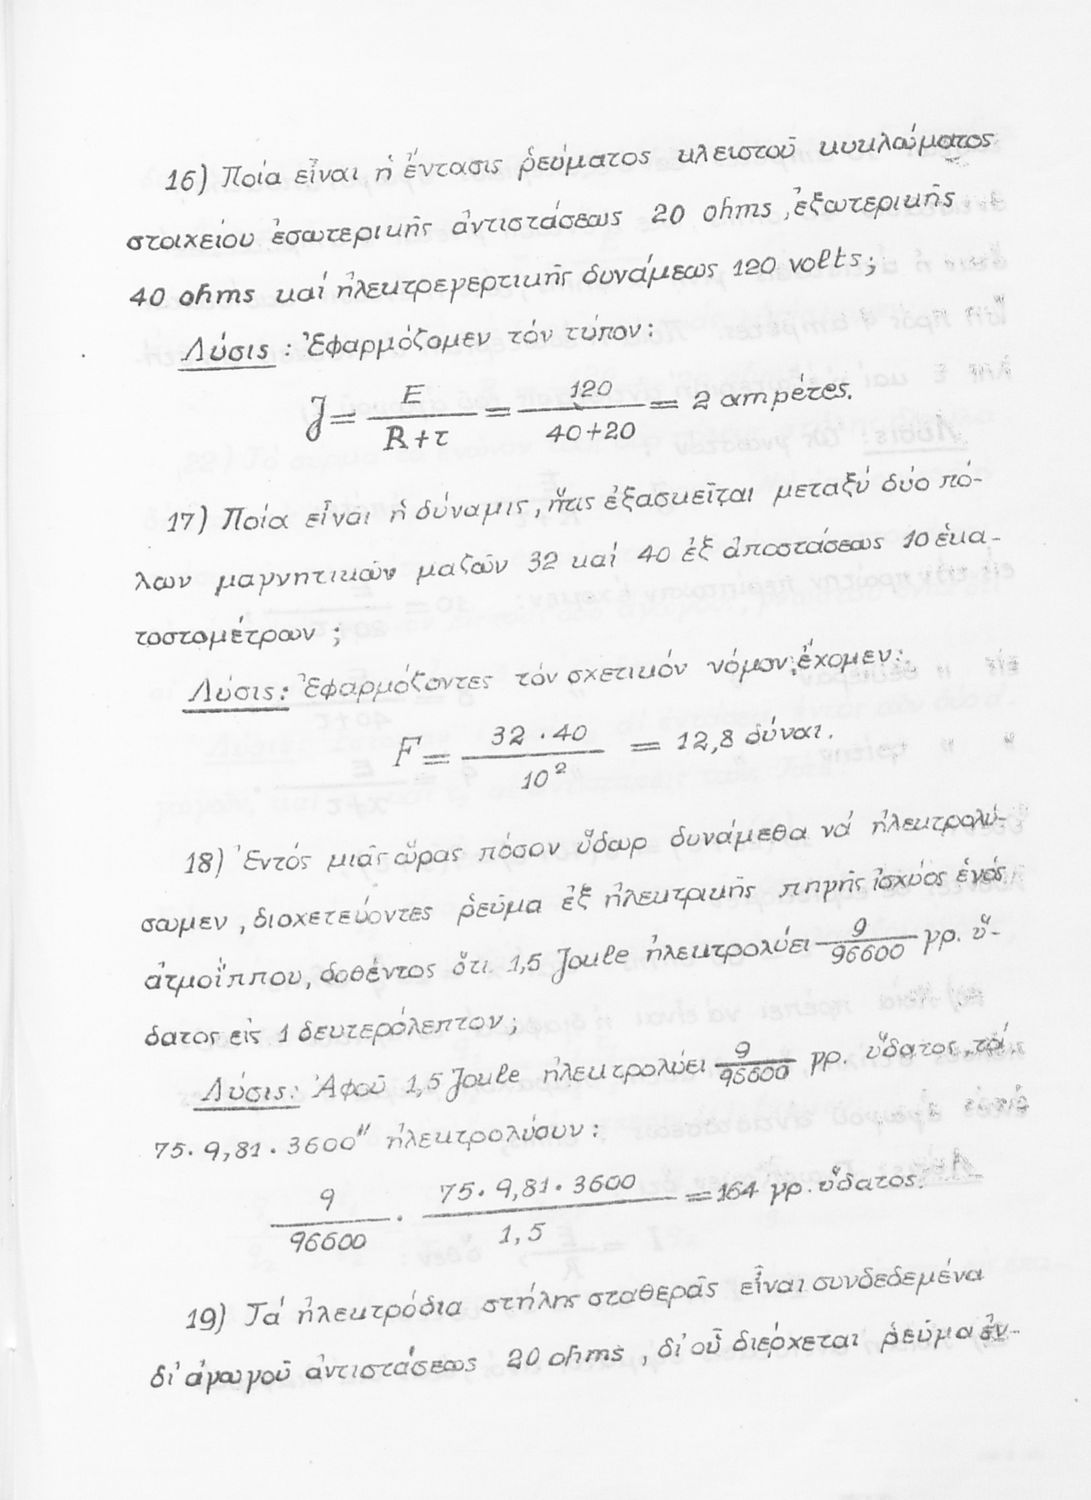 16) Ποία εἶναι ἡ ἔντασις ῥεύματος κλειστοῦ κυκλώματος
στοιχείου ἐσωτερικῆς ἀντιστάσεως 20 ohms, ἐξωτερικῆς
40 ohms καί ἠλεκτρεγερτικῆς δυνάμεως 120 volts;
Λύσις : Ἐφαρμόζομεν τόν τύπον:
J = E / (R+τ) = 120 / (40+20) = 2 ampéres.
17) Ποία εἶναι ἡ δύναμις, ἥτις ἐξασκεῖται μεταξύ δύο πό-
λων μαγνητικῶν μαζῶν 32 καί 40 ἐξ ἀποστάσεως 10 ἑκα-
τοστομέτρων ;
Λύσις: Ἐφαρμόζοντες τόν σχετικόν νόμον, ἔχομεν:
F = 32 · 40 / 10² = 12,8 δύναι.
18) Ἐντός μιᾶς ὥρας πόσον ὕδωρ δυνάμεθα νά ἠλεκτρολύ-
σωμεν, διοχετεύοντες ῥεῦμα ἐξ ἠλεκτρικῆς πηγῆς ἰσχύος ἑνός
ἀτμοΐππου, δοθέντος ὅτι 1,5 Joule ἠλεκτρολύει 9/96600 γρ. ὕ-
δατος εἰς 1 δευτερόλεπτον;
Λύσις: Ἀφοῦ 1,5 Joule ἠλεκτρολύει 9/96600 γρ. ὕδατος, τά
75 · 9,81 · 3600" ἠλεκτρολύουν:
9/96600 · 75 · 9,81 · 3600 / 1,5 = 164 γρ. ὕδατος.
19) Τά ἠλεκτρόδια στήλης σταθερᾶς εἶναι συνδεδεμένα
δι' ἀγωγοῦ ἀντιστάσεως 20 ohms, δι' οὗ διέρχεται ῥεῦμα ἐν-